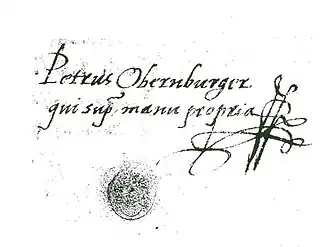 Petrus Obernburger
qui sup manu propria